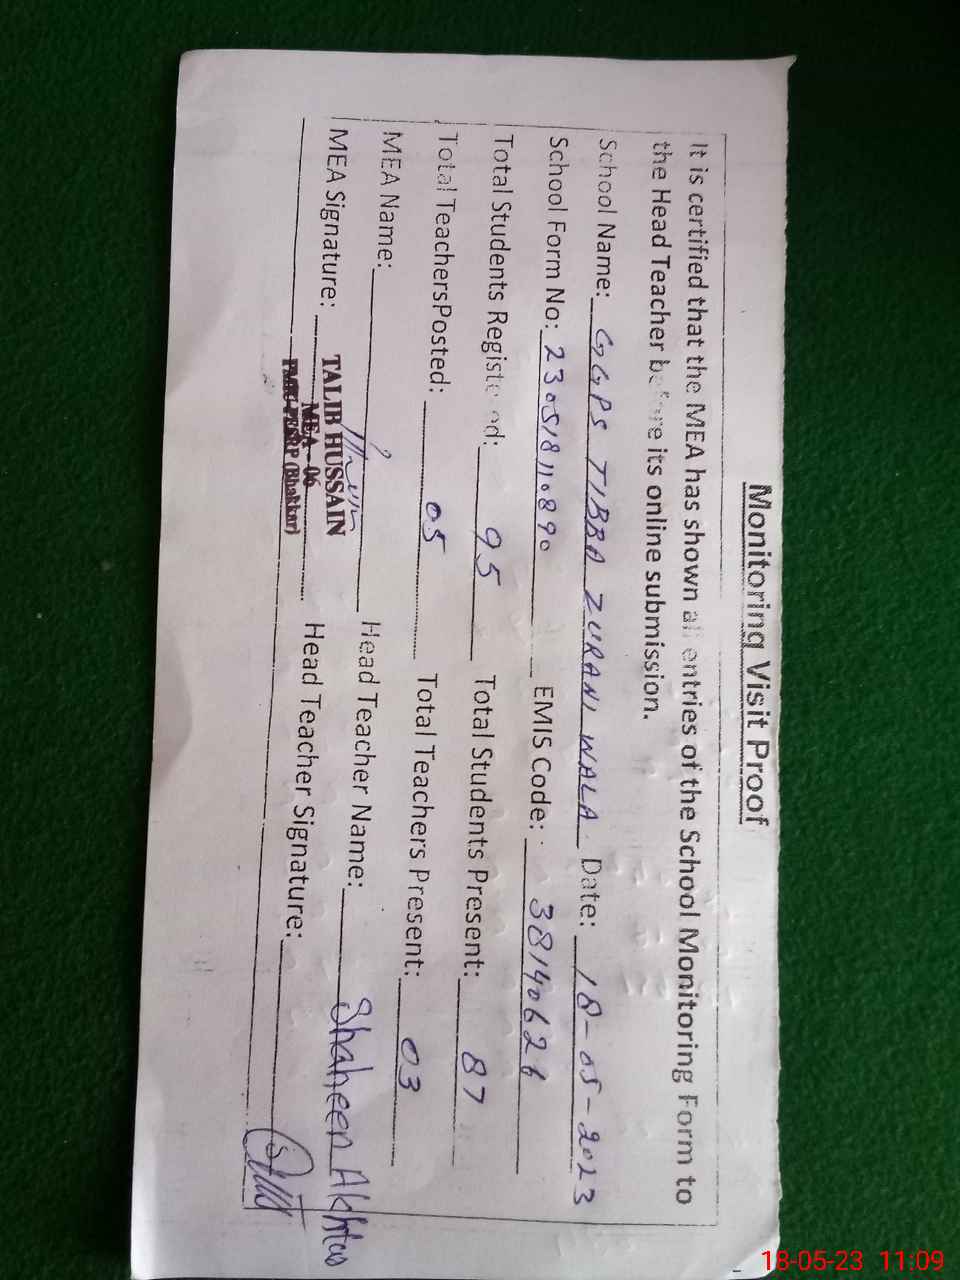 Monitoring Visit Proof
It is certified that the MEA has shown all entries of the School Monitoring Form to
the Head Teacher before its online submission.
School Name: GGPS TIBBA ZURANI WALA Date: 18-05-2023
School Form No: 230518110890 EMIS Code: 38140626
Total Students Registered: 95 Total Students Present: 87
Total TeachersPosted: 05 Total Teachers Present: 03
MEA Name: Head Teacher Name: Shaheen Akhtar
MEA Signature: Head Teacher Signature:
TALIB HUSSAIN
MEA - 06
(Bhakkar)
18-05-23 11:09